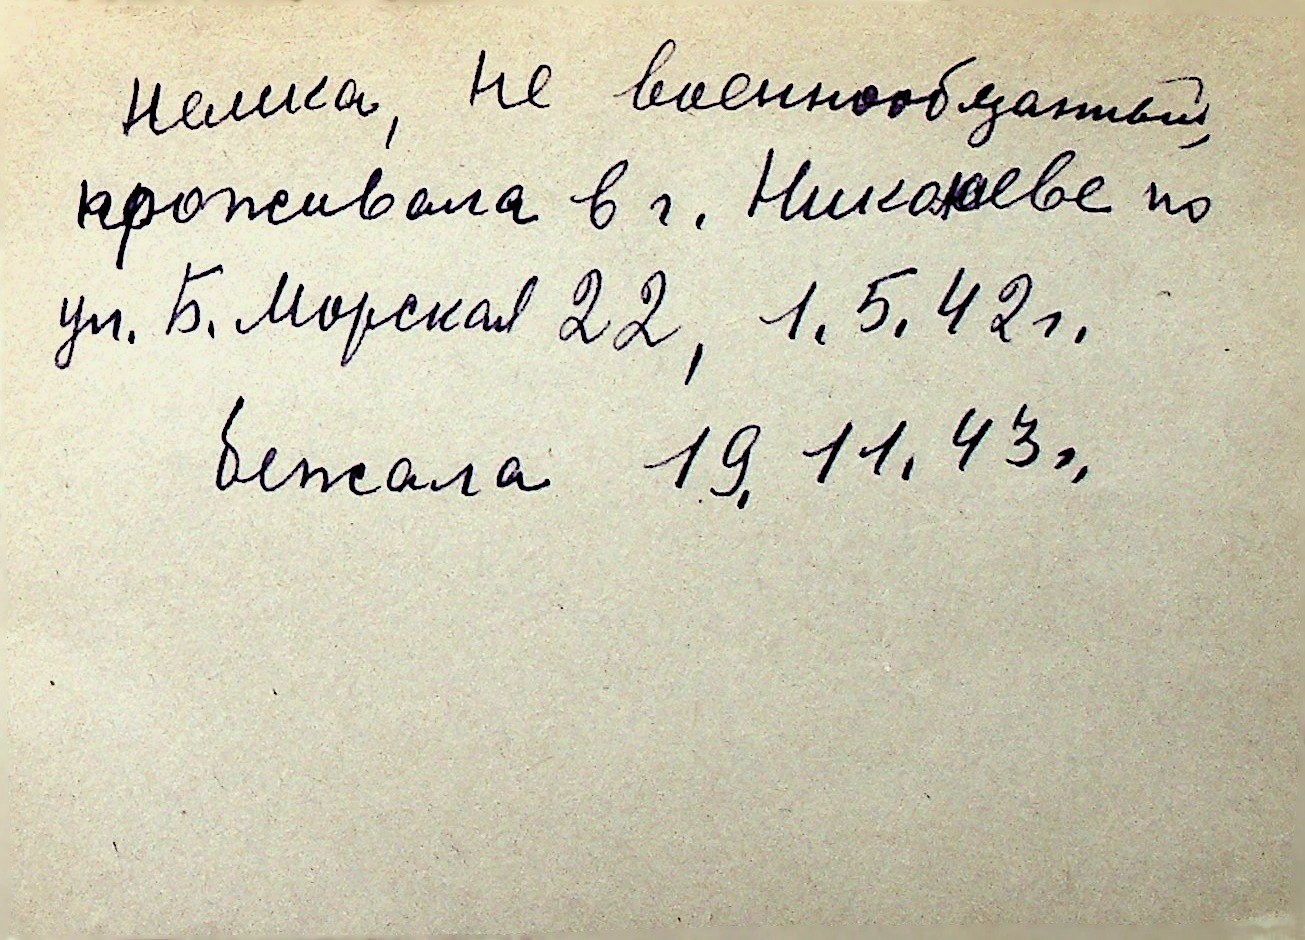 Немка, не военнообязанный,
проживала в г. Николаеве по
ул. Б. Морская 22, 1.5.42г.
Бежала 19.11.43г.